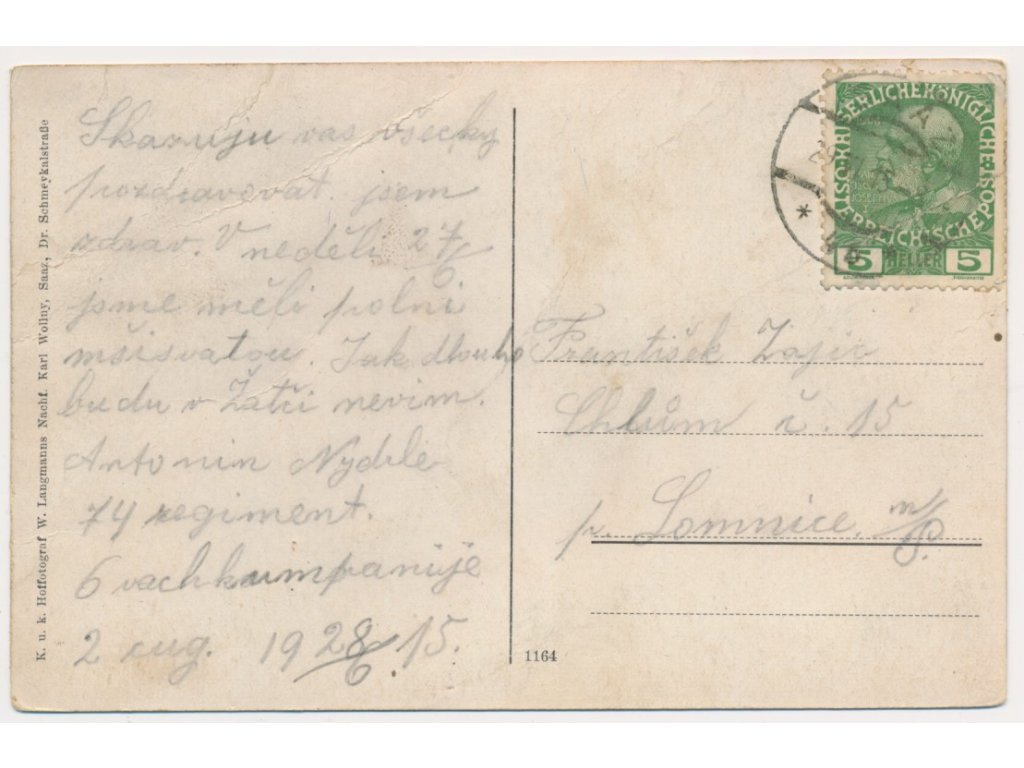 K. u. k. Hoffotograf W. Langmanns Nachf. Karl Wollny, Saaz, Dr. Schmeykalstraße
Skazuju vas všecky
pozdravovat. jsem
zdrav. V neděli 27/6
jsme měli polni
mšisvatou. Jak dlouho
budu v Žatci nevim.
Antonin Nydrle
74 regiment.
6 vachkumpanije
2 cug. 19 28/6 15.
1164
KAISERLICHE KÖNIGLICHE
ÖSTERREICHISCHE POST
5 HELLER 5
František Zajic
Chlům č. 15
p. Lomnice m/P.